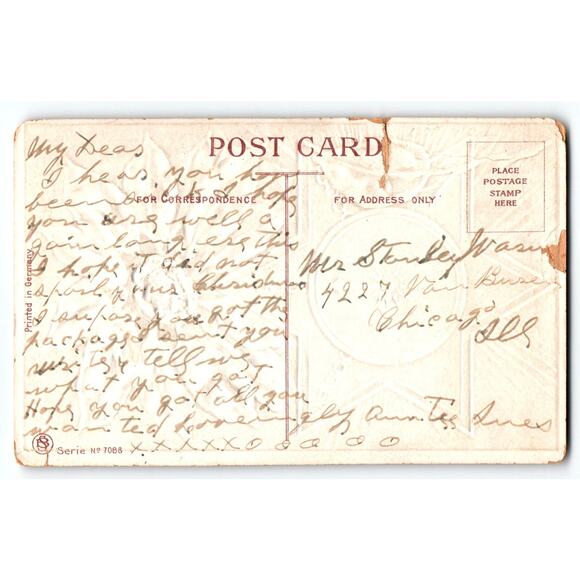 POST CARD
FOR CORRESPONDENCE
FOR ADDRESS ONLY
PLACE
POSTAGE
STAMP
HERE
My Dear
I hear you
been sick I hope
you are well a
gain long ere this
I hope it did not
spoil your Christmas
I supose you got the
package I sent you
write & tell me
what you got
Hope you got all you
wanted Loveingly Auntee Ines
xxxxxooooo
Mr Stanley
4227 Van Buren
Chicago
Ill
Printed in Germany
Serie No 7088